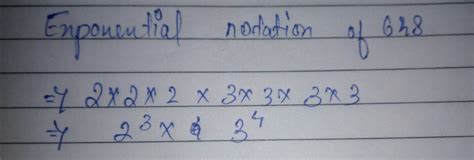 Exponential notation of 648
=> 2 × 2 × 2 × 3 × 3 × 3 × 3
=> 2³ × 3⁴